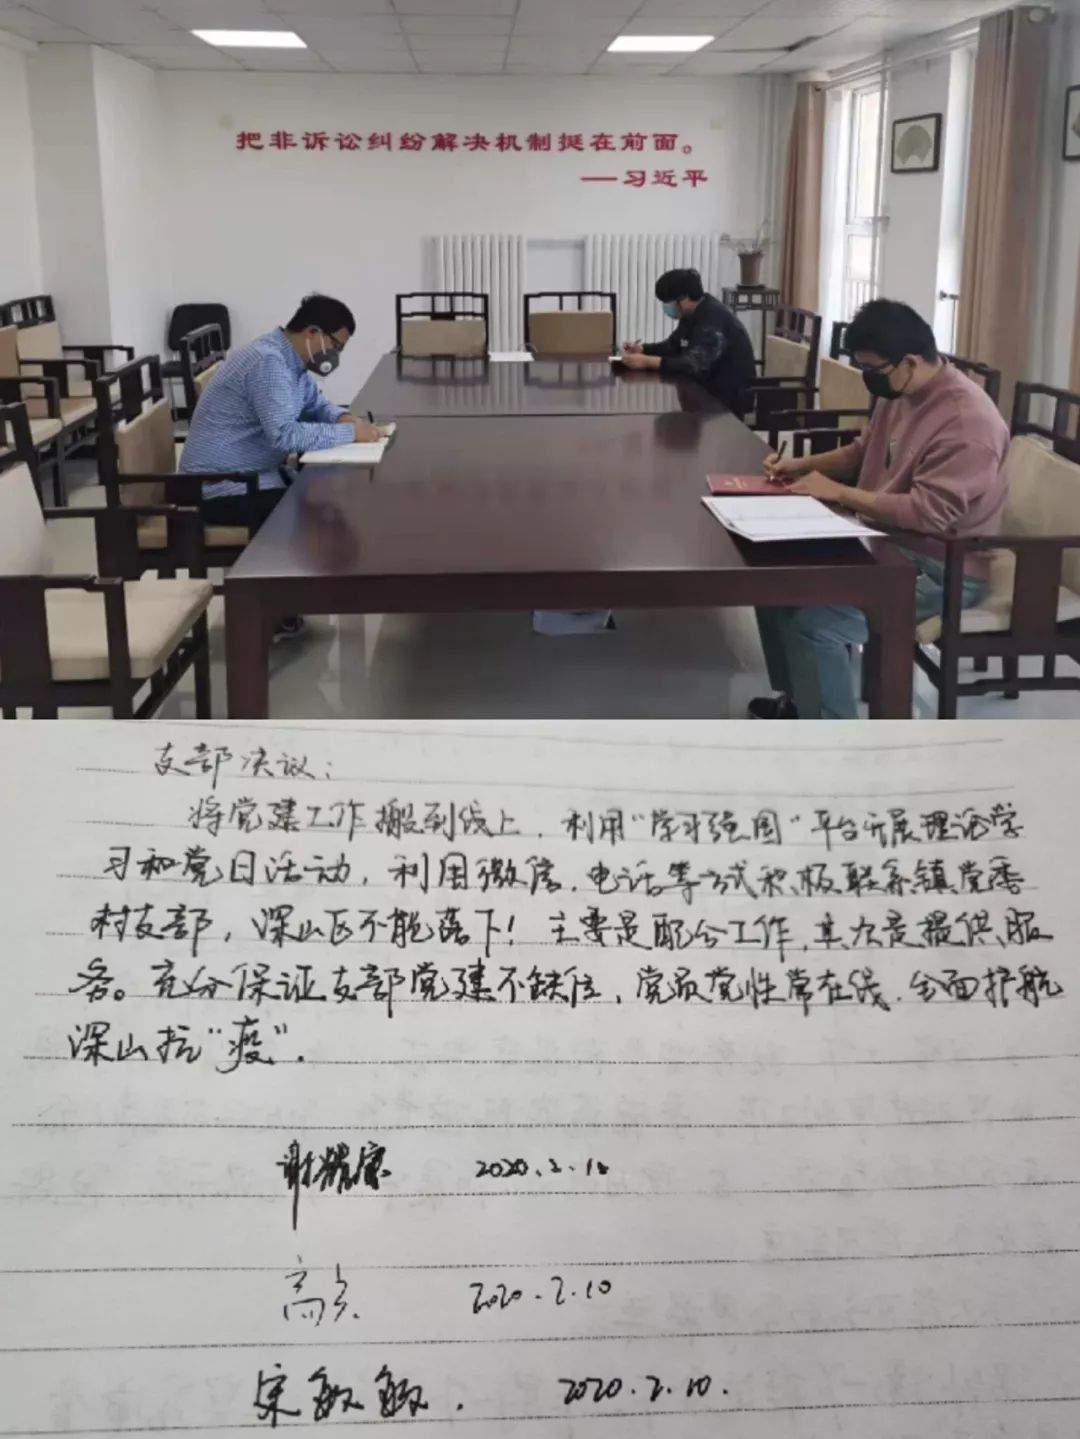 把非诉讼纠纷解决机制挺在前面。
——习近平
支部决议：
将党建工作搬到线上，利用“学习强国”平台开展理论学
习和党日活动，利用微信、电话等方式积极联系镇党委
村支部，深山区不能落下！主要是配合工作，其次是提供服
务。充分保证支部党建不缺位，党员党性常在线，全面护航
深山抗“疫”.
谢耀康 2020.2.10
高 2020.2.10
宋敏敏. 2020.2.10.